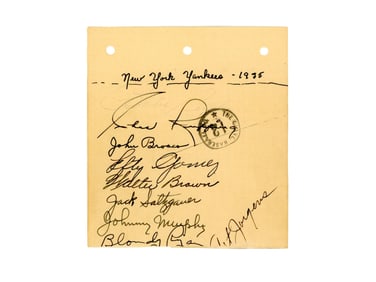 New York Yankees - 1935
Chas Ruffing
John Broaca
Lefty Gomez
Walter Brown
Jack Saltzgaver
Johnny Murphy
Blondy Ryan
A. Jorgens